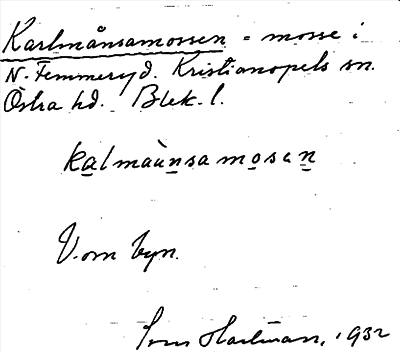 Karlmånsamossen = mosse i
N. Femmeryd. Kristianopels sn.
Östra hd. Blek. l.
kalmaùnsamosen
V. om byn.
Sven Hartman, 1932